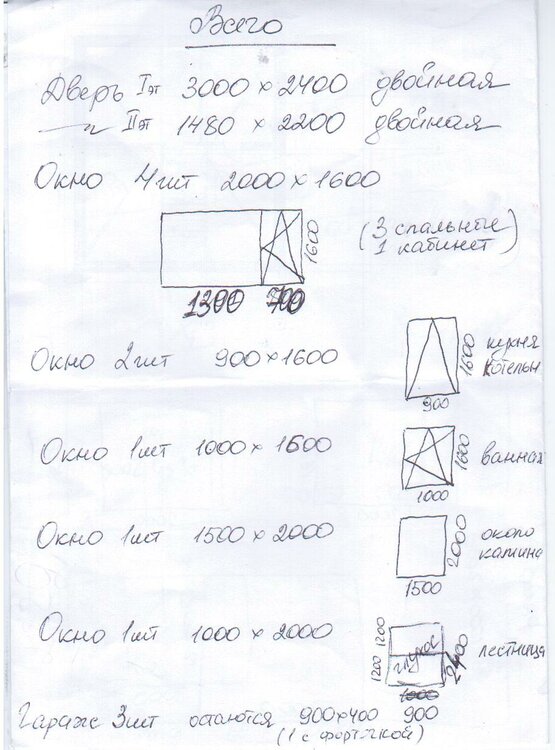 Всего
Дверь I эт 3000 × 2400 двойная
—〃— II эт 1480 × 2200 двойная
Окно 4 шт 2000 × 1600
1600
(3 спальные
1 кабинет)
1300 700
Окно 2 шт 900 × 1600
1600
кухня
котельн
900
Окно 1 шт 1000 × 1600
1600
ванная
1000
Окно 1 шт 1500 × 2000
2000
около
камина
1500
Окно 1 шт 1000 × 2000
1200 1200
глухое
2400
лестница
1000
Гараж 3 шт остаются 900×400 900
(1 с форт.чкой)